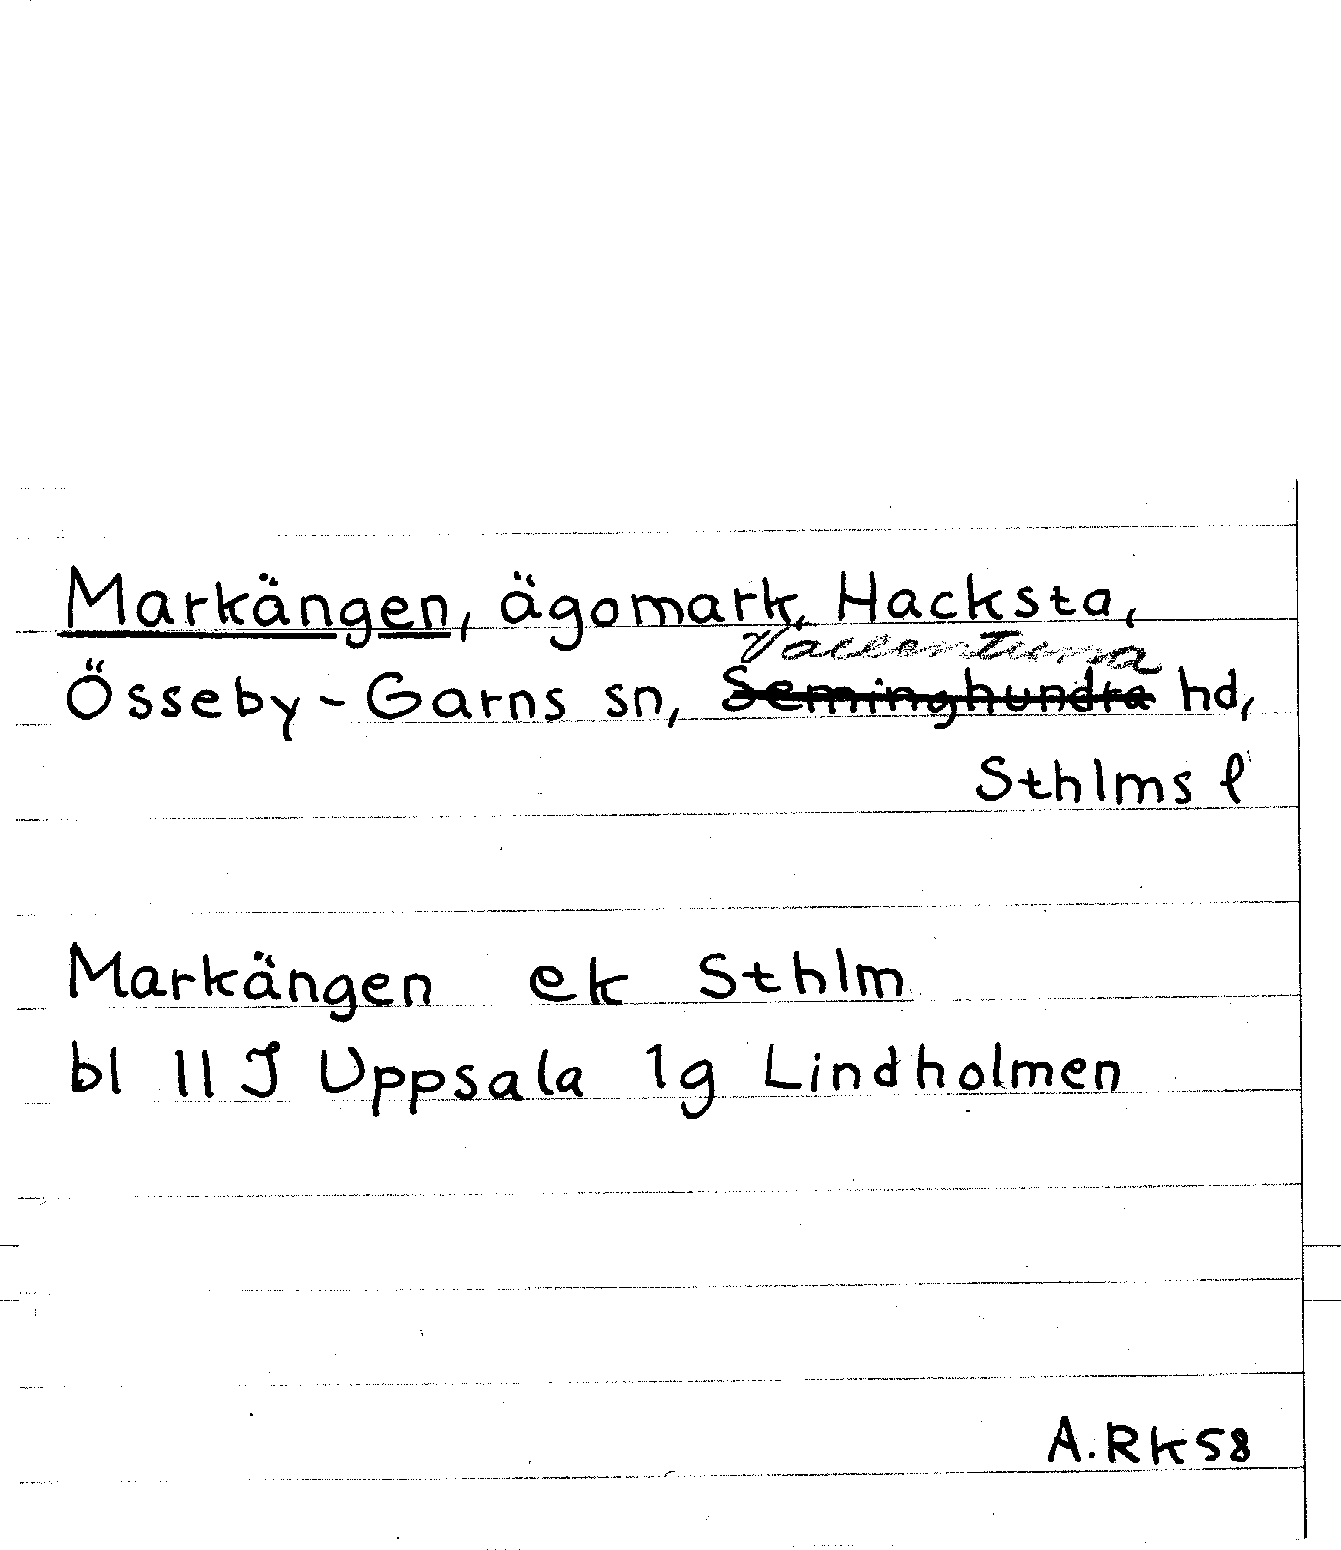 Markängen, ägomark, Hacksta,
Vallentuna
Össeby-Garns sn, Seminghundra hd,
Sthlms l
Markängen ek Sthlm
bl 11 J Uppsala 1g Lindholmen
A.RK58